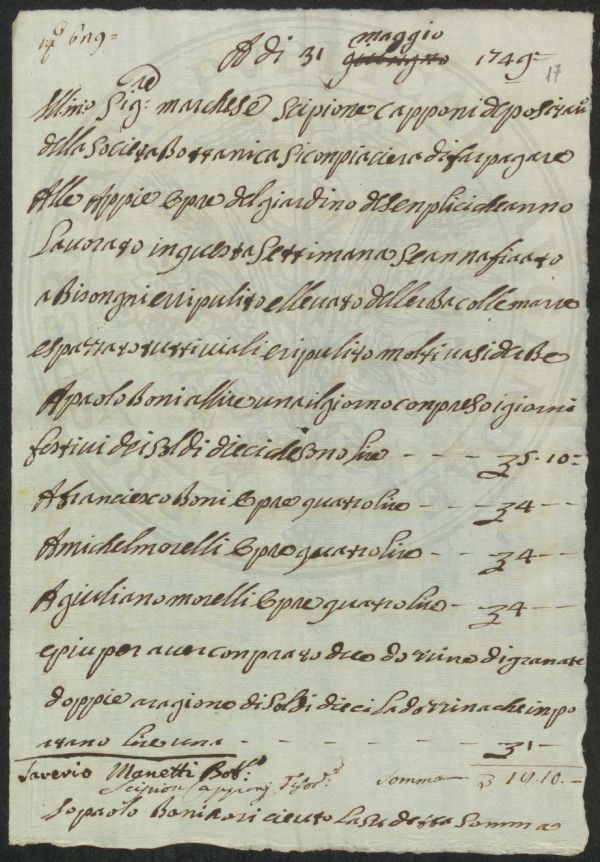 A di 31 maggio giugno 1749
17
Illmo Sigre marchese scipione capponi depositaro
della Societa Bottanica Siconpiacera di far pagare
Alle Appie Opre del giardino desenplici che anno
Lavorato in questa Settimana Se annafiato
a Bisongni e ripulito ellevato dellerba colle marre
e spazzato tutti viali e ripulito molti vasi derbe
A paolo Boni allire una il giorno conpreso i giorni
festivi dei soldi dieci che sono lire - - - 5.10-
A franciesco Boni Opre quatro lire - - - 4 - -
A michel morelli Opre quatro lire - - 4 - -
A giuliano morelli Opre quatro lire - - 4 - -
e piu per aver conprato due dozzine di granate
doppie a ragione di Soldi dieci La dozzina che inpo
rtano lire una - - - - - - - 1 -
Saverio Manetti Bot.
Scipion Capponi Tesor.
Somma 19.10.-
Io paolo Boni o ricieuto La Sudetta Somma